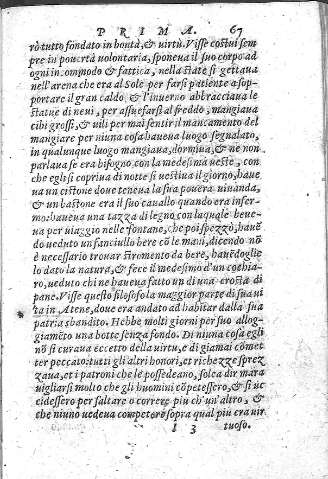 PRIMA. 67
rò tutto fondato in bontà, & uirtù. Visse costui sem
pre in pouertà uolontaria, sponeua il suo corpo ad
ogni incommodo & fattica, nella state si gettaua
nell'arena che era al Sole per farsi patiente a sop-
portare il gran caldo & l'inuerno abbracciaua le
statue di neui, per assuefarsi al freddo; mangiaua
cibi grossi, & uili per mai sentir il mancamento del
mangiare per niuna cosa haueua luogo segnalato,
in qualunque luogo mangiaua, dormiua, & ne non
parlaua se era bisogno con la medesima ueste, con
che egli si copriua di notte si uestiua il giorno, haue
ua un cistone doue teneua la sua pouera uiuanda,
& un bastone era il suo cauallo quando era infer-
mo: haueua una tazza di legno con laquale beue-
ua per uiaggio nelle fontane, che poi spezzò, hauē
do ueduto un fanciullo bere cō le mani, dicendo nō
è necessario trouar stromento da bere, hauēdoglie
lo dato la natura, & fece il medesimo d'un cochia-
ro, ueduto chi ne haueua fatto un di una crosta di
pane. Visse questo filosofo la maggior parte di sua ui
ta in Atene, doue era andato ad habitar dalla sua
patria sbandito. Hebbe molti giorni per suo allog-
giamēto una botte senza fondo. Di niuna cosa egli
nō si curaua eccetto della uirtu, e di giamai cōmet
ter peccato: tutti gli altri honori, et richezze sprez
zaua, et i patroni che le possedeano, solea dir mara
uigliarsi molto che gli huomini cōpetessero, & si uc
cidessero per saltare o correre piu ch'un'altro, &
che niuno uedeua competere sopra qual piu era uir
I 3 tuoso.